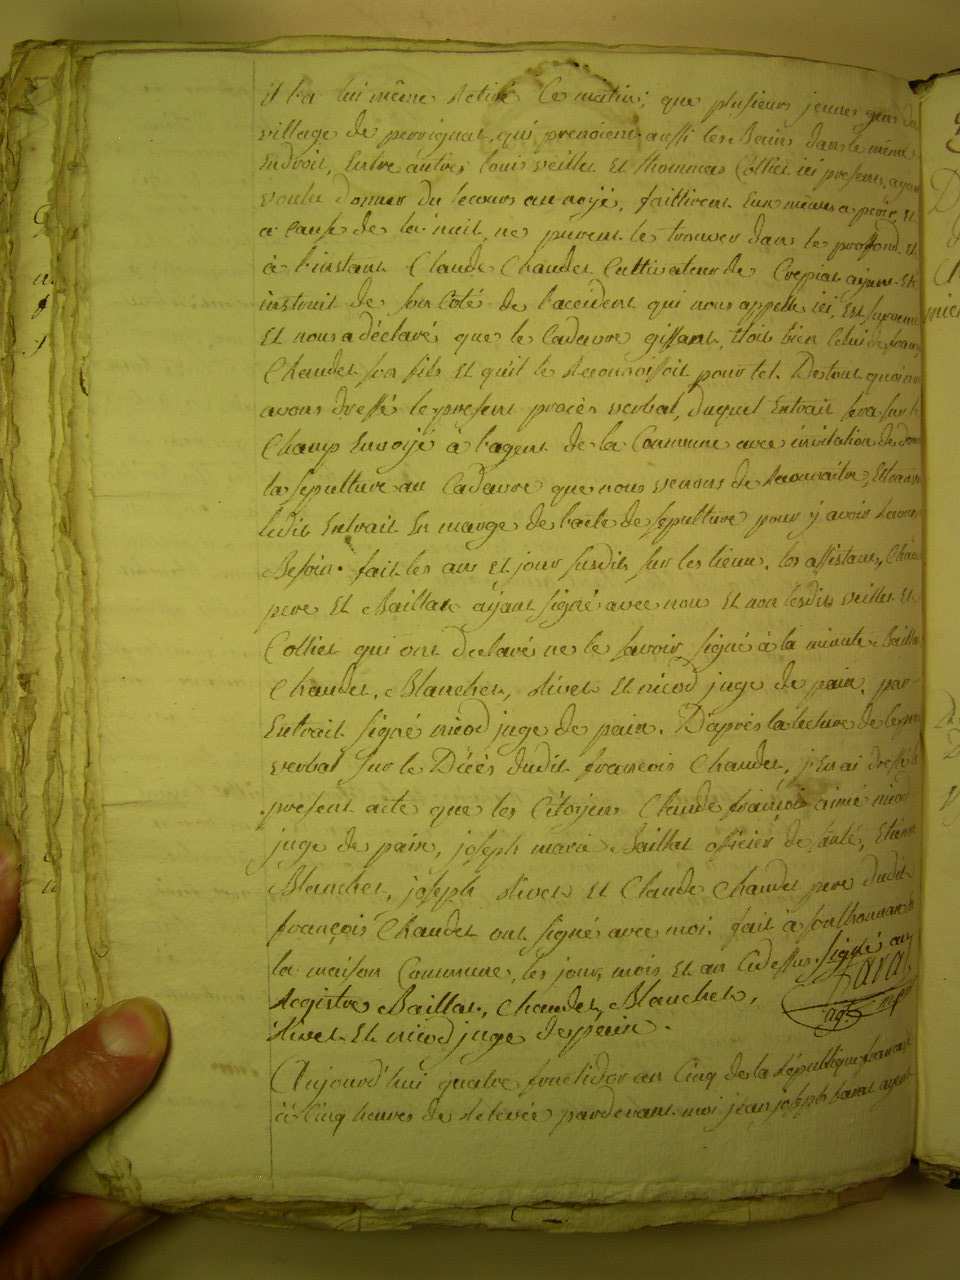 il l'a lui même retiré ce matin; que plusieurs jeunes gens du
village de perrignat, qui prenoient aussi les Bains dans le même
Endroit, Entre autres louis veillet Et thommas Collier ici présens, ayan
voulu donner du secours au noyé, faillirent Eux mêmes a périr, Et
a cause de la nuit, ne purent le trouver dans le proffond. Et
à l'instant Claude Chaudet Cultivateur de Crepiat ayant Eté
instruit de son Côté de l'accident qui nous appelle ici, Est survenu
Et nous a déclaré que le Cadavre gissant, étoit bien Celui de franç
Chaudet son fils Et quil le reconnoissoit pour tel. De tout quoi nous
avons dressé le present procès verbal, duquel Extrait sera sur le
Champ Envoyé à l'agent de la Commune avec invitation de donn
la sépulture au Cadavre que nous venons de reconnaitre, Et transc
ledit Extrait En marge de l'acte de sépulture pour y avoir recours
Besoin. fait les an Et jour susdits sur les lieux. les assistans, Chau
pere Et Baillat ayant signé avec nou Et non lesdits veillet Et
Collier qui ont déclaré ne le savoir, signé à la minute Baillat
Chaudet, Blanchet, rivet Et nicod juge de paix. par
Extrait signé nicod juge de paix. D'après la lecture de ce procès
verbal sur le Décès dudit françois Chaudet, j'En ai dressé le
present acte que les Citoyens Claude françois aimé nicod
juge de paix, joseph marie Baillat officier de santé, Etienne
Blanchet, joseph rivet Et Claude Chaudet pere dudit
françois Chaudet ont signé avec moi. fait à Southonnax
la maison Commune, les jour, mois Et an Cidessus. signé au
Registre Baillat, Chaudet, Blanchet, Savat
rivet Et nicod juge de paix. agt
Aujourd'hui quatre fructidor an Cinq de la République française
à Cinq heures de relevée pardevant moi jean joseph Savat agent